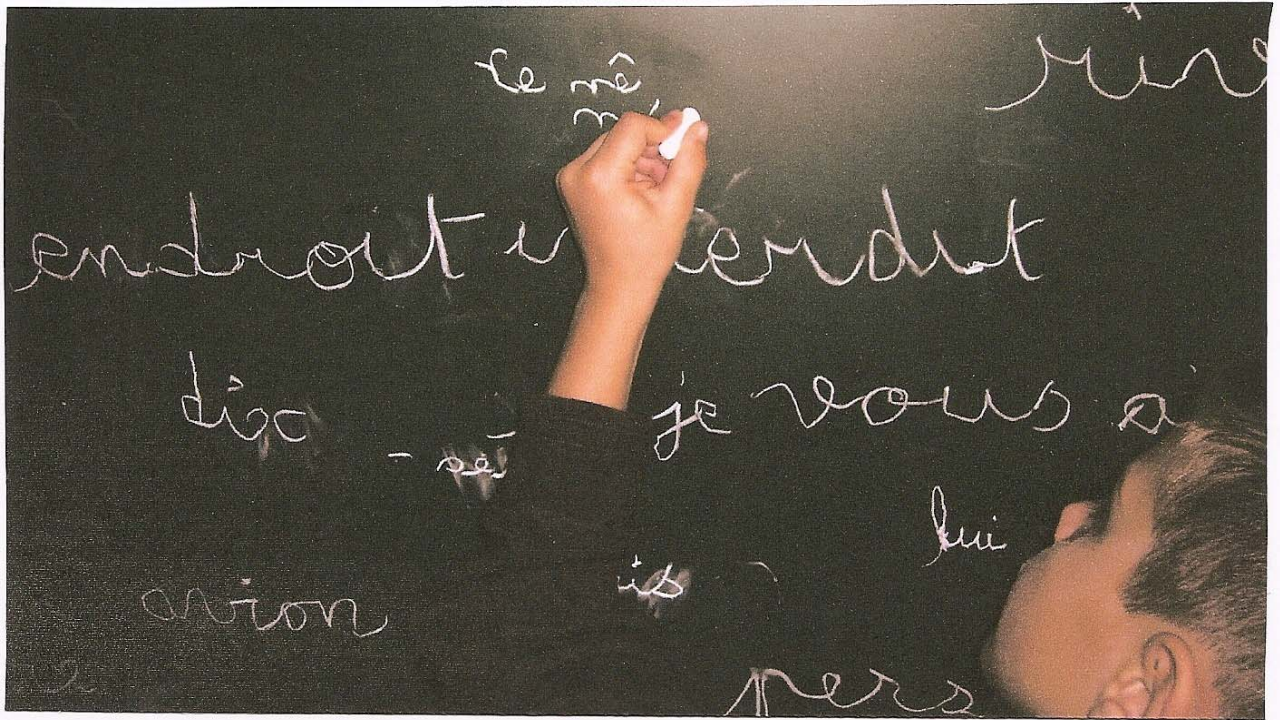 Le mê
rire
endroit interdit
dix
je vous a
lui
is
avion
pers